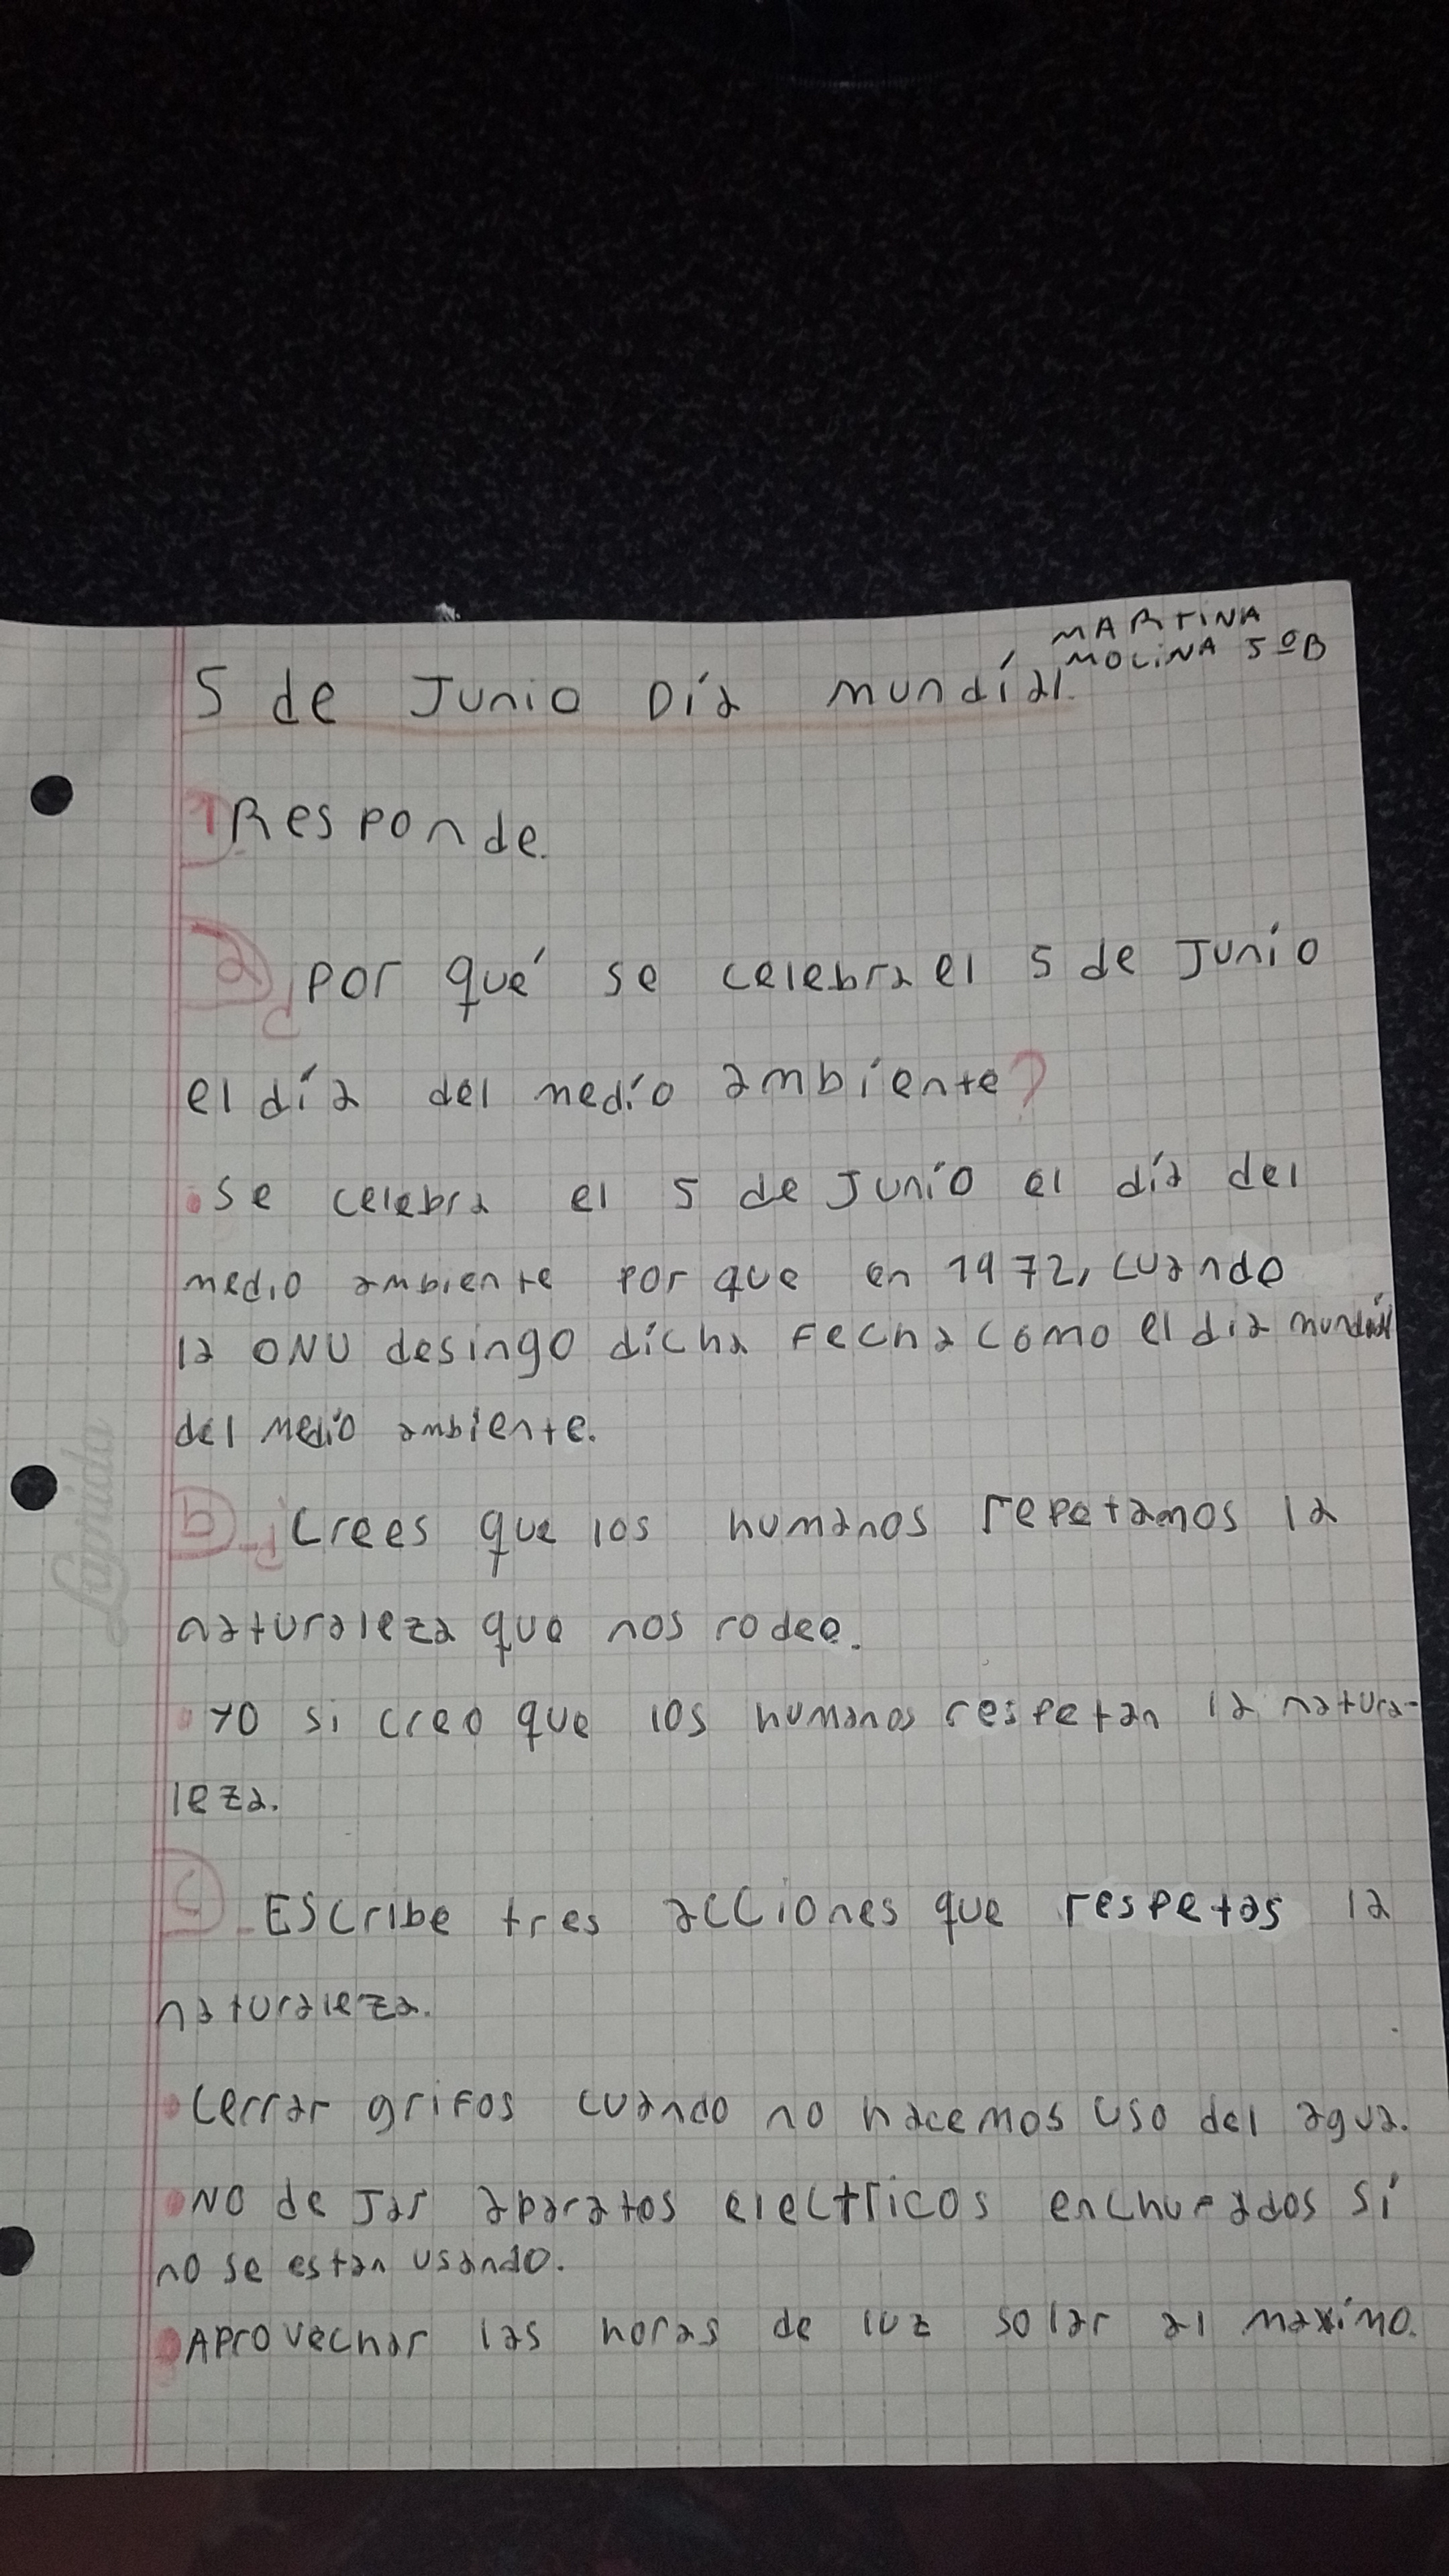 MARTINA
MOLINA 5ºB
5 de Junio Día mundíal.
1 Responde.
a) ¿Por qué se celebra el 5 de Junio
el día del medio ambiente?
• Se celebra el 5 de Junio el día del
medio ambiente por que en 1972, cuando
la ONU desingo dicha Fecha como el dia mundial
del medio ambiente.
b) ¿Crees que los humanos repetamos la
naturaleza que nos rodee.
• Yo si creo que los humanos respetan la natura-
leza.
c) Escribe tres acciones que respetas la
naturaleza.
• Cerrar grifos cuando no hacemos uso del agua.
• No de Jar aparatos electricos enchufados si
no se estan usando.
• Aprovechar las horas de luz solar al maximo.
Lamido